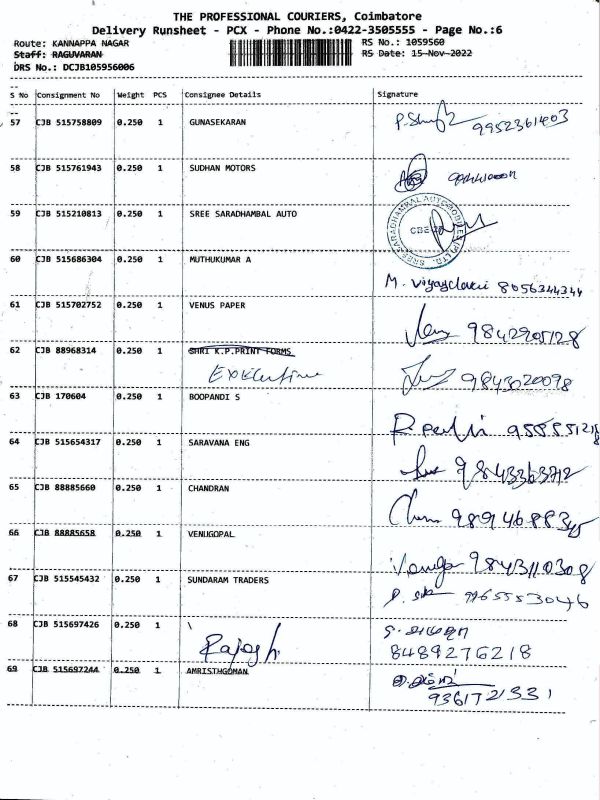 THE PROFESSIONAL COURIERS, Coimbatore
Delivery Runsheet - PCX - Phone No.:0422-3505555 - Page No.:6
Route: KANNAPPA NAGAR RS No.: 1059560
Staff: RAGUVARAN RS Date: 15-Nov-2022
DRS No.: DCJB105956006
S No Consignment No Weight PCS Consignee Details Signature
57 CJB 515758809 0.250 1 GUNASEKARAN 9952361403
58 CJB 515761943 0.250 1 SUDHAN MOTORS
59 CJB 515210813 0.250 1 SREE SARADHAMBAL AUTO
SREE SARADHAMBAL AUTOMOBILES (P) LTD.
60 CJB 515686304 0.250 1 MUTHUKUMAR A
M. 8056344344
61 CJB 515702752 0.250 1 VENUS PAPER
9842905128
62 CJB 88968314 0.250 1 SHRI K.P.PRINT FORMS
Executive 9843020098
63 CJB 170604 0.250 1 BOOPANDI S
64 CJB 515654317 0.250 1 SARAVANA ENG
9843363712
65 CJB 88885660 0.250 1 CHANDRAN
66 CJB 88885658 0.250 1 VENUGOPAL
9843110308
67 CJB 515545432 0.250 1 SUNDARAM TRADERS
9965553046
68 CJB 515697426 0.250 1
Rajesh 8489276218
69 CJB 515697244 0.250 1 AMRISTHGOMAN
9361721331